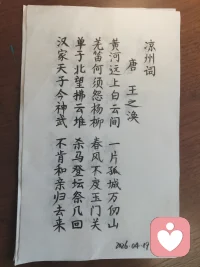 凉州词
唐 王之涣
黄河远上白云间 一片孤城万仞山
羌笛何须怨杨柳 春风不度玉门关
单于北望拂云堆 杀马登坛祭几回
汉家天子今神武 不肯和亲归去来
2026.04.19